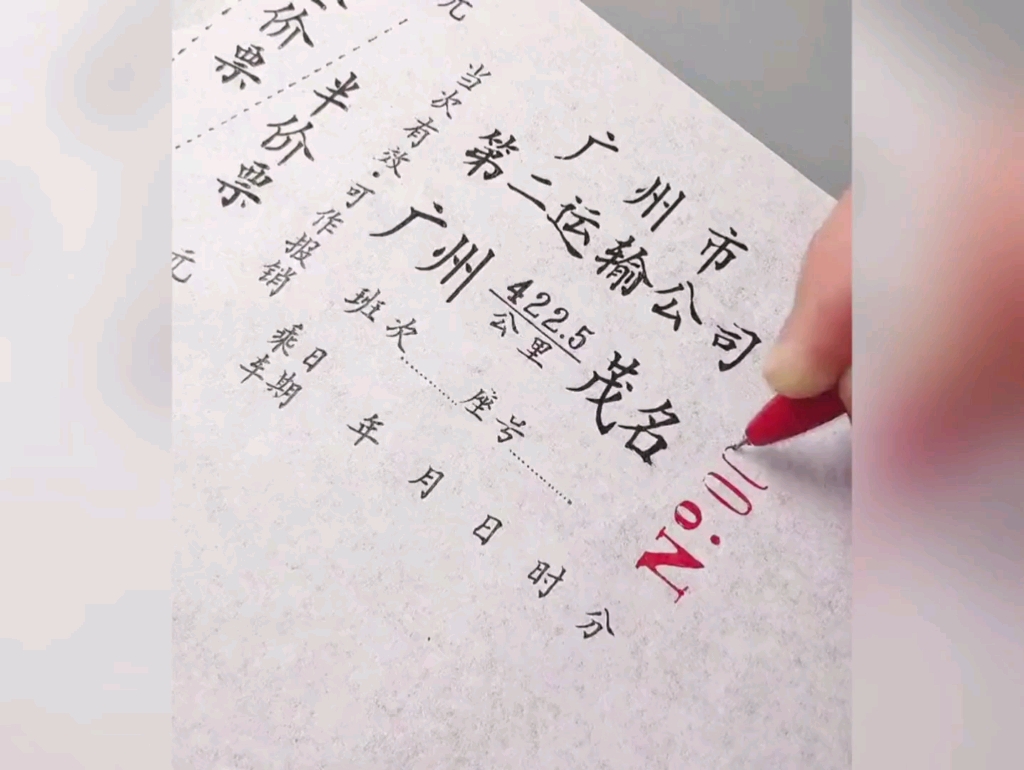 广州市
第二运输公司
广州 422.5公里 茂名
班次 座号
乘车日期 年月日时分
当次有效·可作报销
元
半价票
元
价票
No.